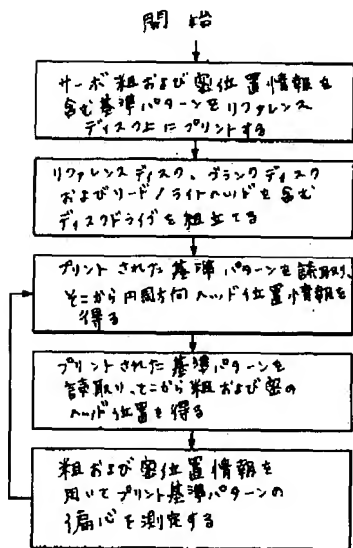 開始
サーボ粗および密位置情報を
含む基準パターンをリファレンス
ディスク上にプリントする
リファレンスディスク、ブランクディスク
およびリード/ライトヘッドを含む
ディスクドライブを組立てる
プリントされた基準パターンを読取り、
そこから円周方向ヘッド位置情報を
得る
プリントされた基準パターンを
読取り、そこから粗および密の
ヘッド位置を得る
粗および密位置情報を
用いてプリント基準パターンの
偏心を測定する